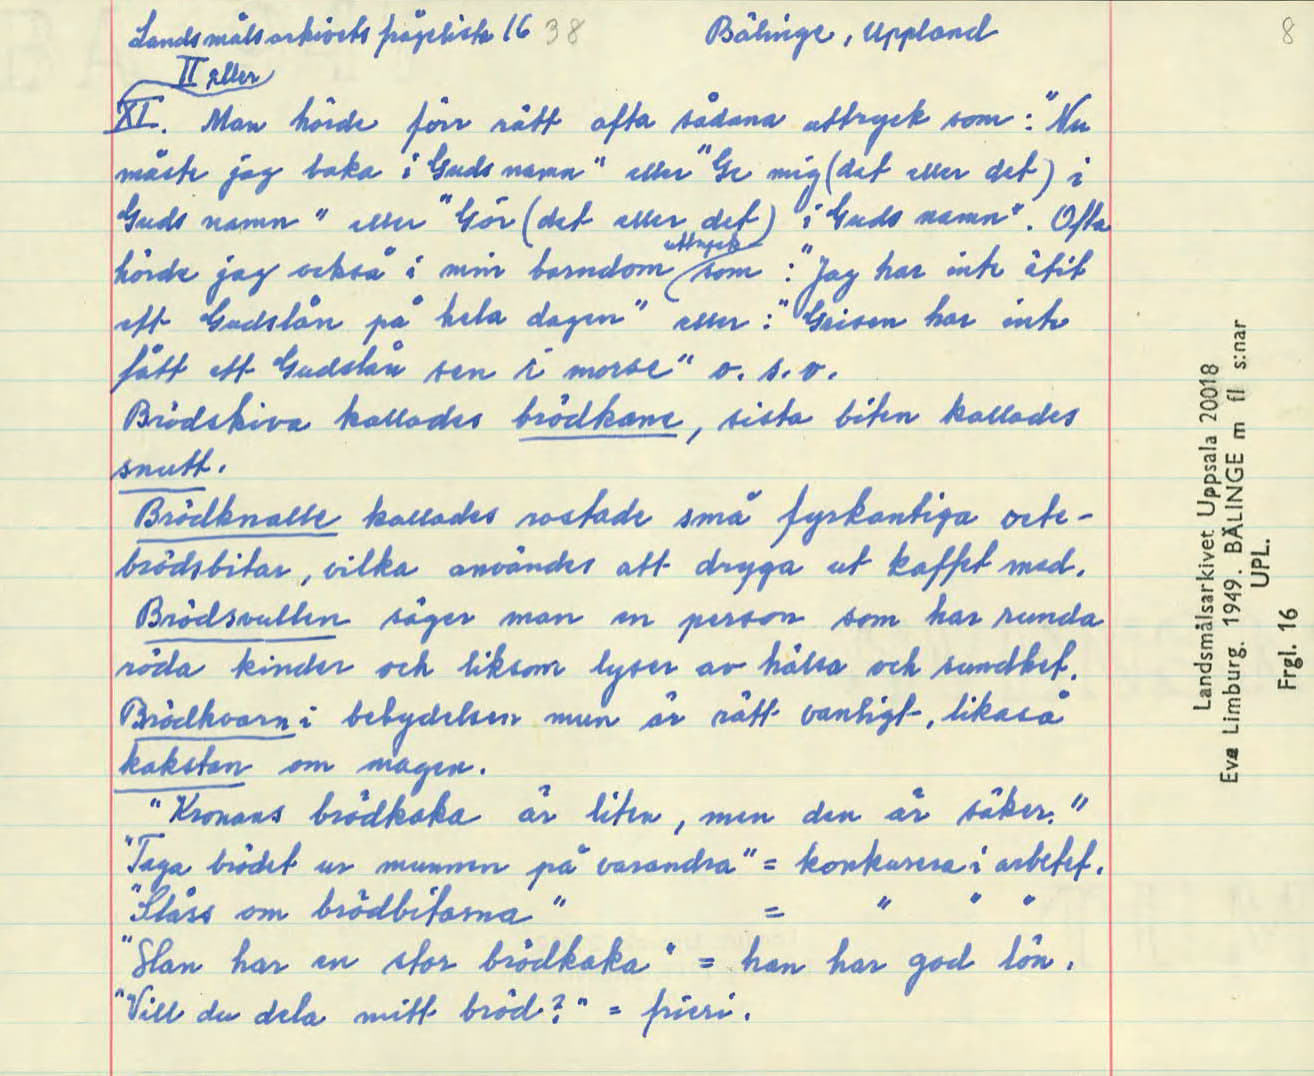 Landsmålsarkivets frågelista 16 38 Bälinge, Uppland 8
II eller
XI. Man hörde förr rätt ofta sådana uttryck som: "Nu
måste jag baka i Guds namn" eller "Ge mig (det eller det) i
Guds namn" eller "Gör (det eller det) i Guds namn". Ofta
hörde jag också i min barndom uttryck som: "Jag har inte ätit
ett Gudslån på hela dagen" eller: "Grisen har inte
fått ett Gudslån sen i morse" o. s. v.
Brödskiva kallades brödkane, sista biten kallades
snutt.
Brödknalle kallades rostade små fyrkantiga vete-
brödsbitar, vilka användes att dryga ut kaffet med.
Brödsvullen säger man en person som har runda
röda kinder och liksom lyser av hälsa och sundhet.
Brödkvarn i betydelsen mun är rätt vanligt, likaså
kakstan om magen.
"Kronans brödkaka är liten, men den är säker."
"Taga brödet ur munnen på varandra" = konkurera i arbetet.
"Slåss om brödbitarna" = " " "
"Han har en stor brödkaka" = han har god lön.
"Vill du dela mitt bröd?" = frieri.
Landsmålsarkivet Uppsala 20018
Eva Limburg. 1949. BÄLINGE m fl s:nar
UPL.
Frgl. 16